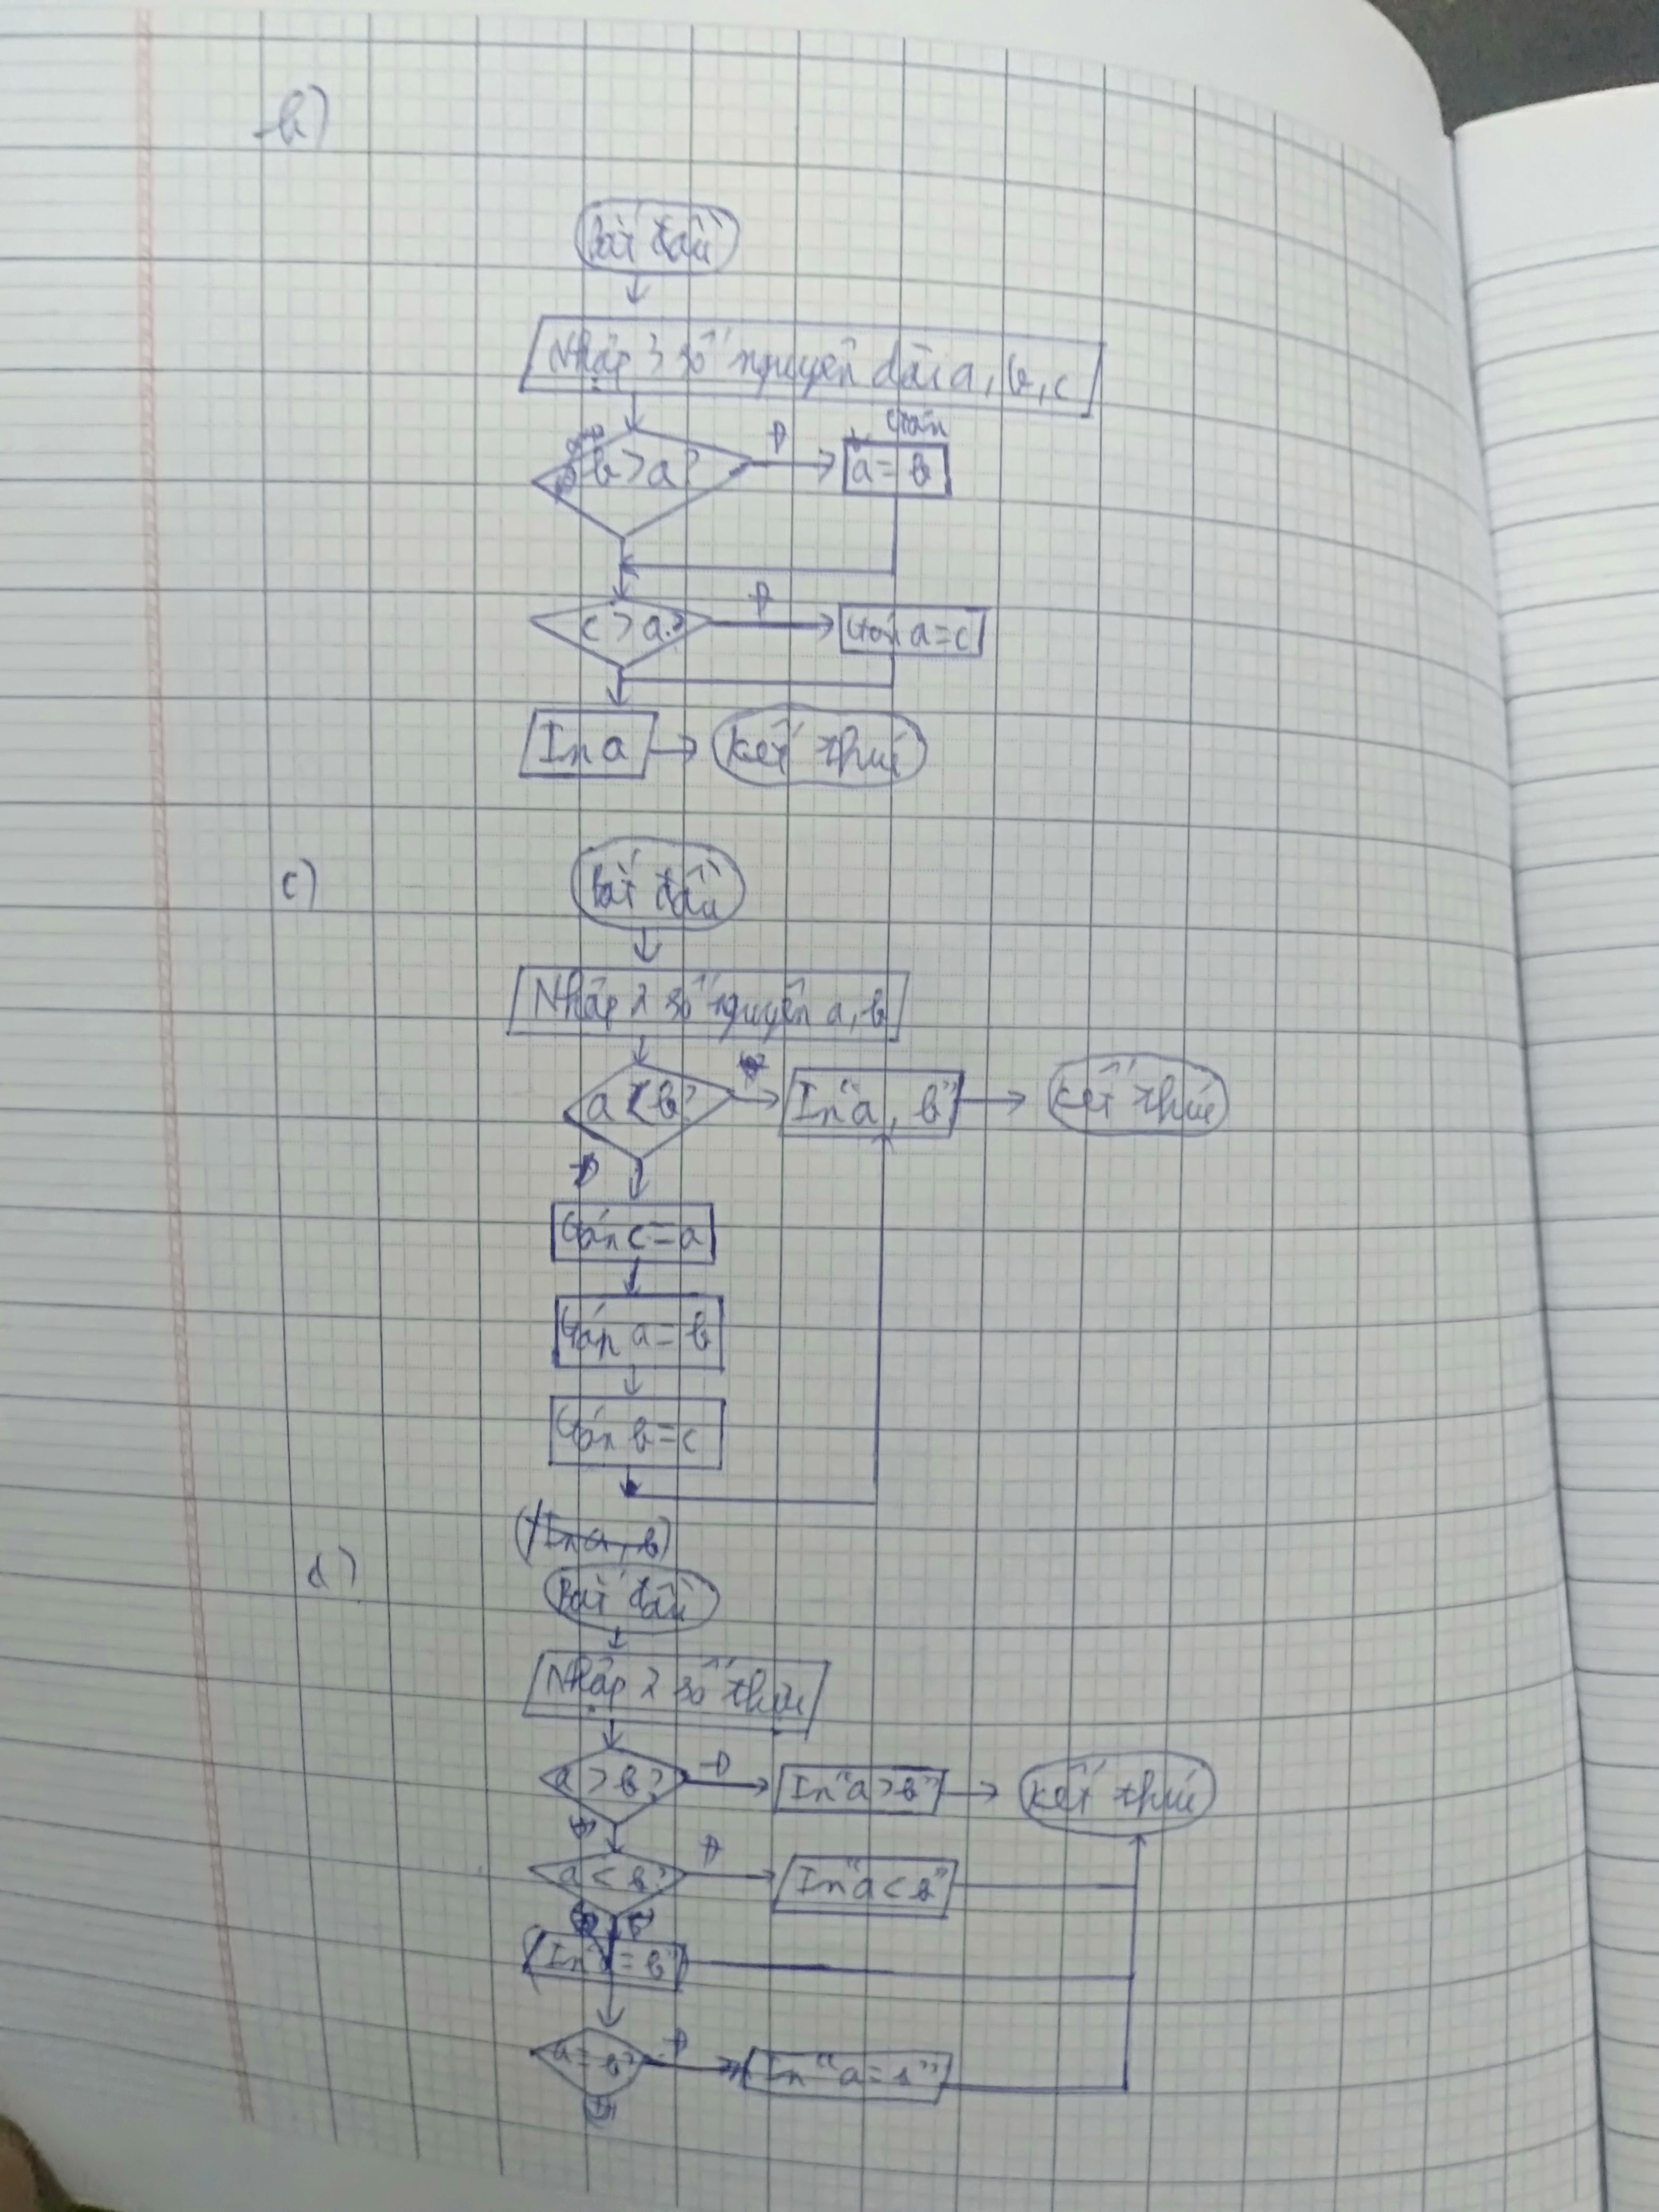 b)
Bắt đầu
Nhập 3 số nguyên dài a, b, c
b > a? Đ Gán a = b
c > a? Đ Gán a = c
In a Kết thúc
c) Bắt đầu
Nhập 2 số nguyên a, b
a < b? In "a, b" Kết thúc
Đ
Gán c = a
Gán a = b
Gán b = c
In a, b
d)
Bắt đầu
Nhập 2 số thực
a > b? Đ In "a > b" Kết thúc
a < b? Đ In "a < b"
In a = b
a = b? Đ In "a = b"